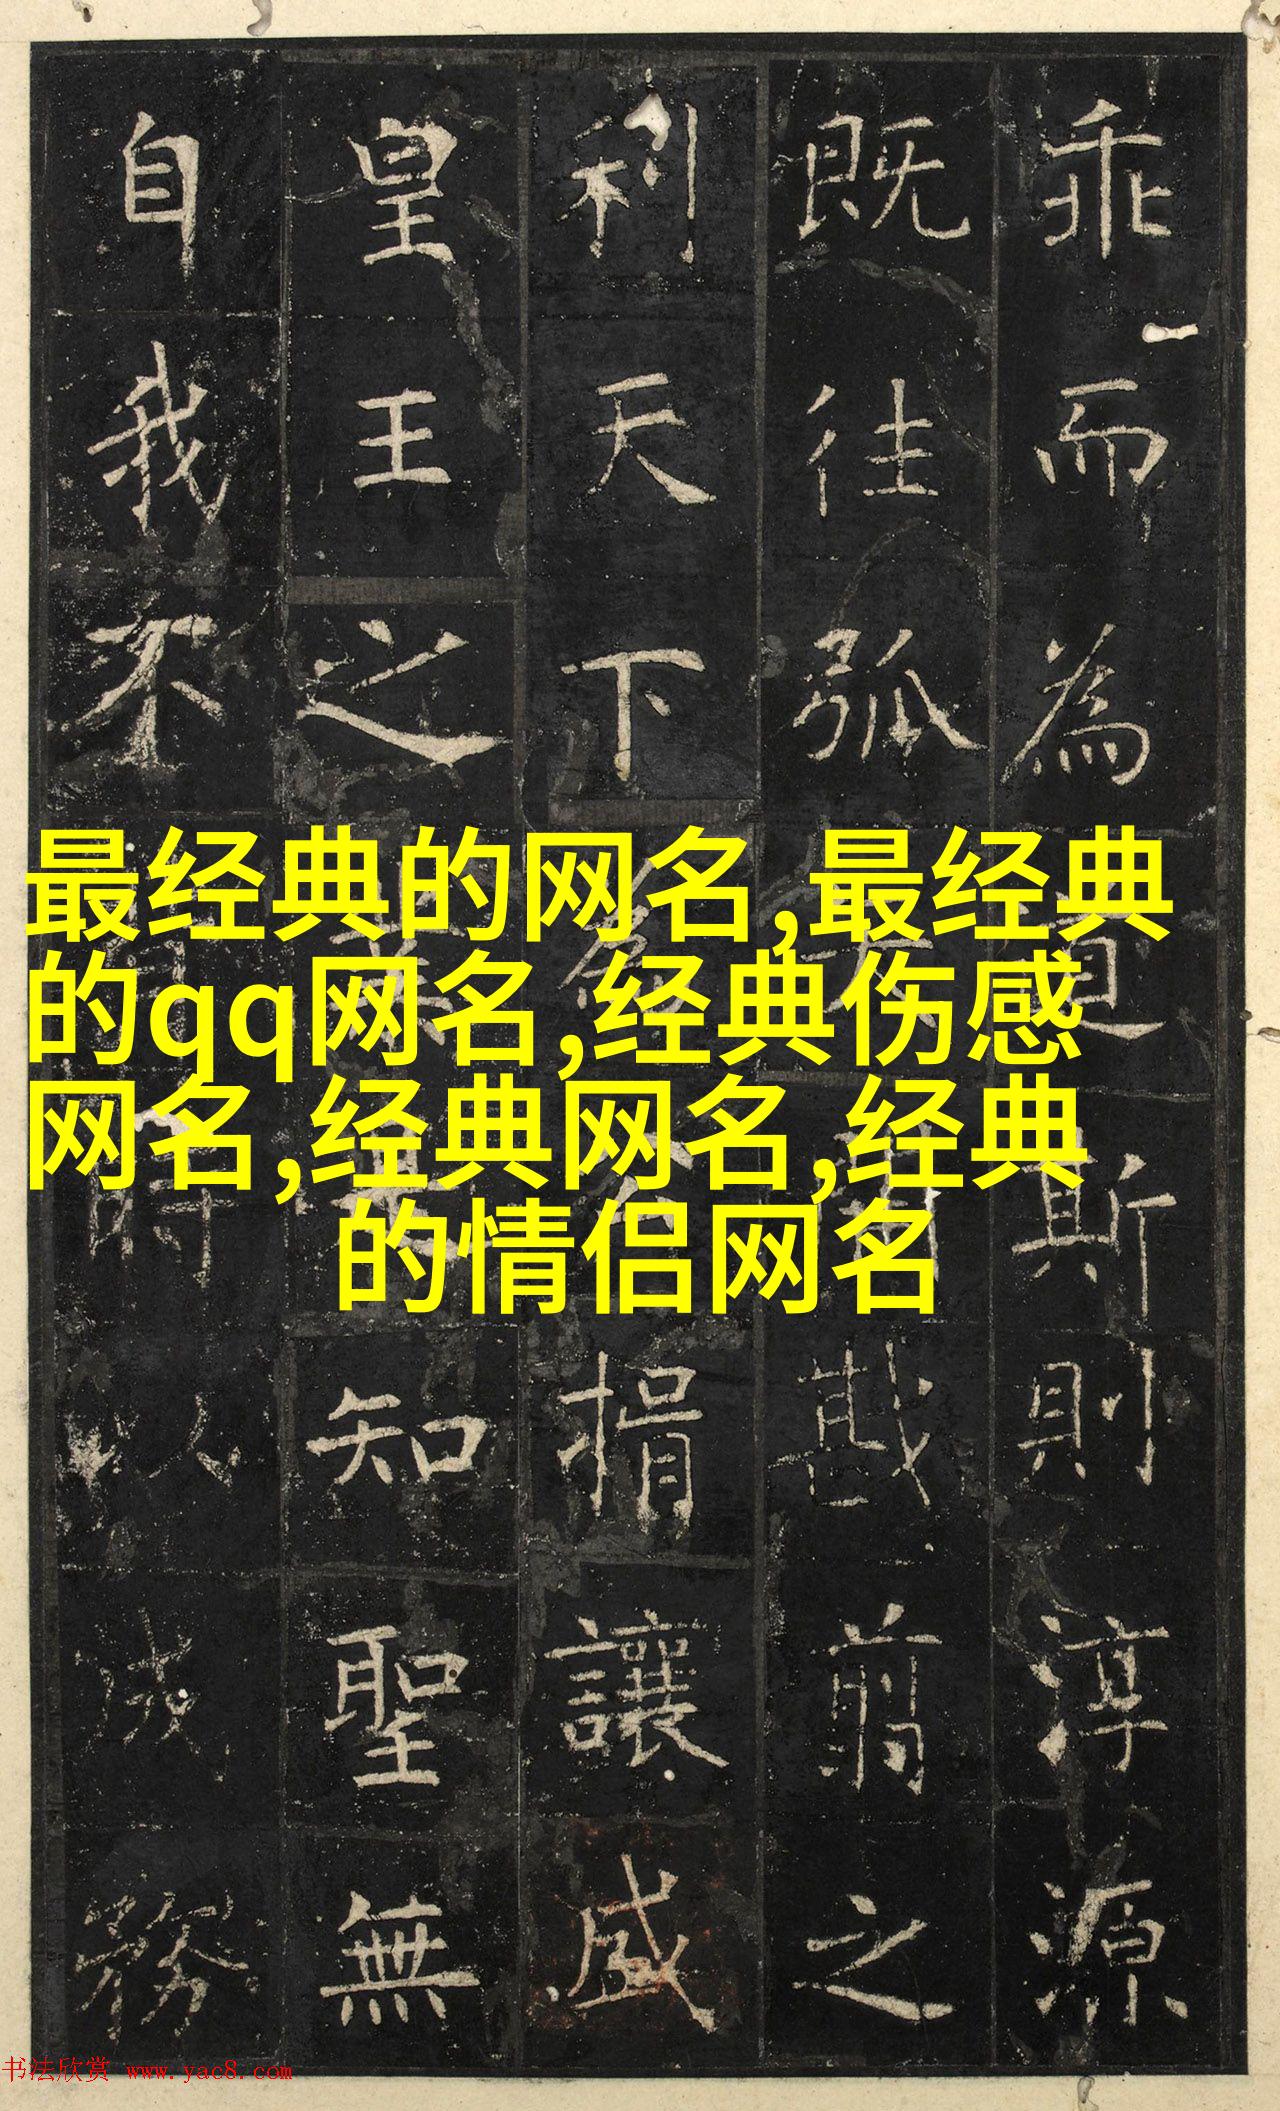 乖而為道斯則淳源
既往弧戡翦之
利天下揖讓盛
皇王之知聖無
自我不時以成務
最经典的网名,最经典
的qq网名,经典伤感
网名,经典网名,经典
的情侣网名
书法欣赏 www.yac8.com